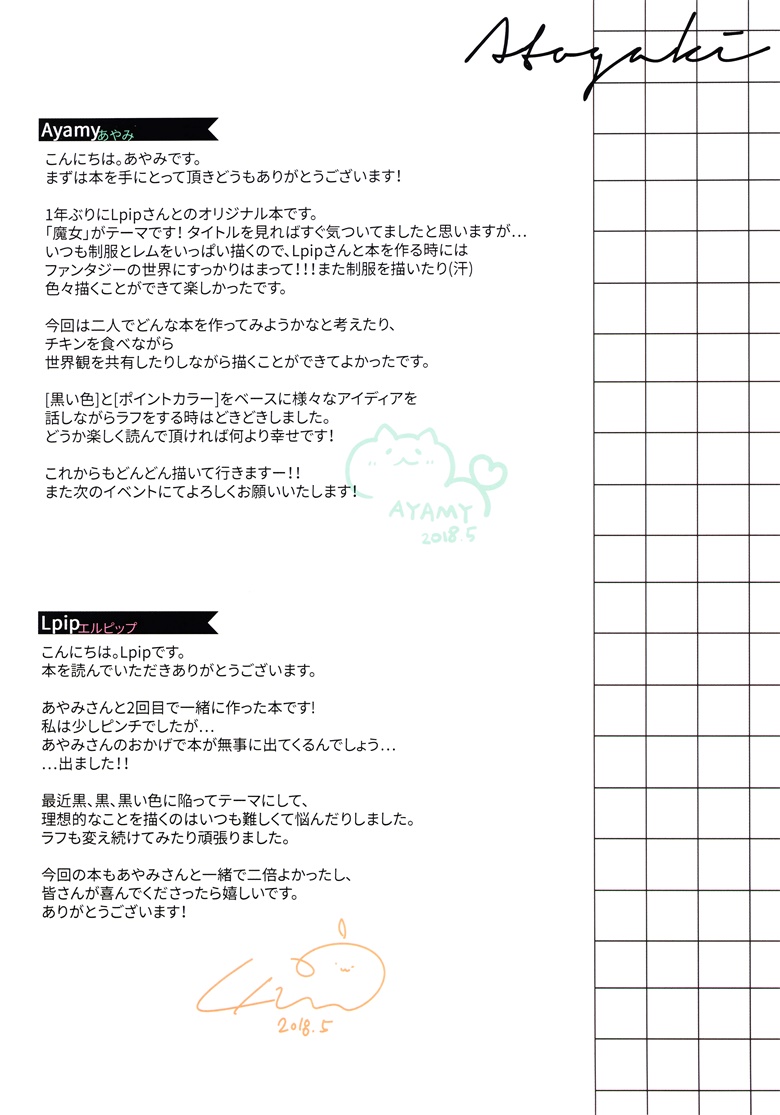 Atogaki
Ayamy あやみ
こんにちは。あやみです。
まずは本を手にとって頂きどうもありがとうございます！
1年ぶりにLpipさんとのオリジナル本です。
「魔女」がテーマです！タイトルを見ればすぐ気ついてましたと思いますが…
いつも制服とレムをいっぱい描くので、Lpipさんと本を作る時には
ファンタジーの世界にすっかりはまって！！！また制服を描いたり(汗)
色々描くことができて楽しかったです。
今回は二人でどんな本を作ってみようかなと考えたり、
チキンを食べながら
世界観を共有したりしながら描くことができてよかったです。
[黒い色]と[ポイントカラー]をベースに様々なアイディアを
話しながらラフをする時はどきどきしました。
どうか楽しく読んで頂ければ何より幸せです！
これからもどんどん描いて行きますー！！
また次のイベントにてよろしくお願いいたします！
AYAMY
2018.5
Lpip エルピップ
こんにちは。Lpipです。
本を読んでいただきありがとうございます。
あやみさんと2回目で一緒に作った本です!
私は少しピンチでしたが…
あやみさんのおかげで本が無事に出てくるんでしょう…
…出ました！！
最近黒、黒、黒い色に陥ってテーマにして、
理想的なことを描くのはいつも難しくて悩んだりしました。
ラフも変え続けてみたり頑張りました。
今回の本もあやみさんと一緒で二倍よかったし、
皆さんが喜んでくださったら嬉しいです。
ありがとうございます！
2018.5